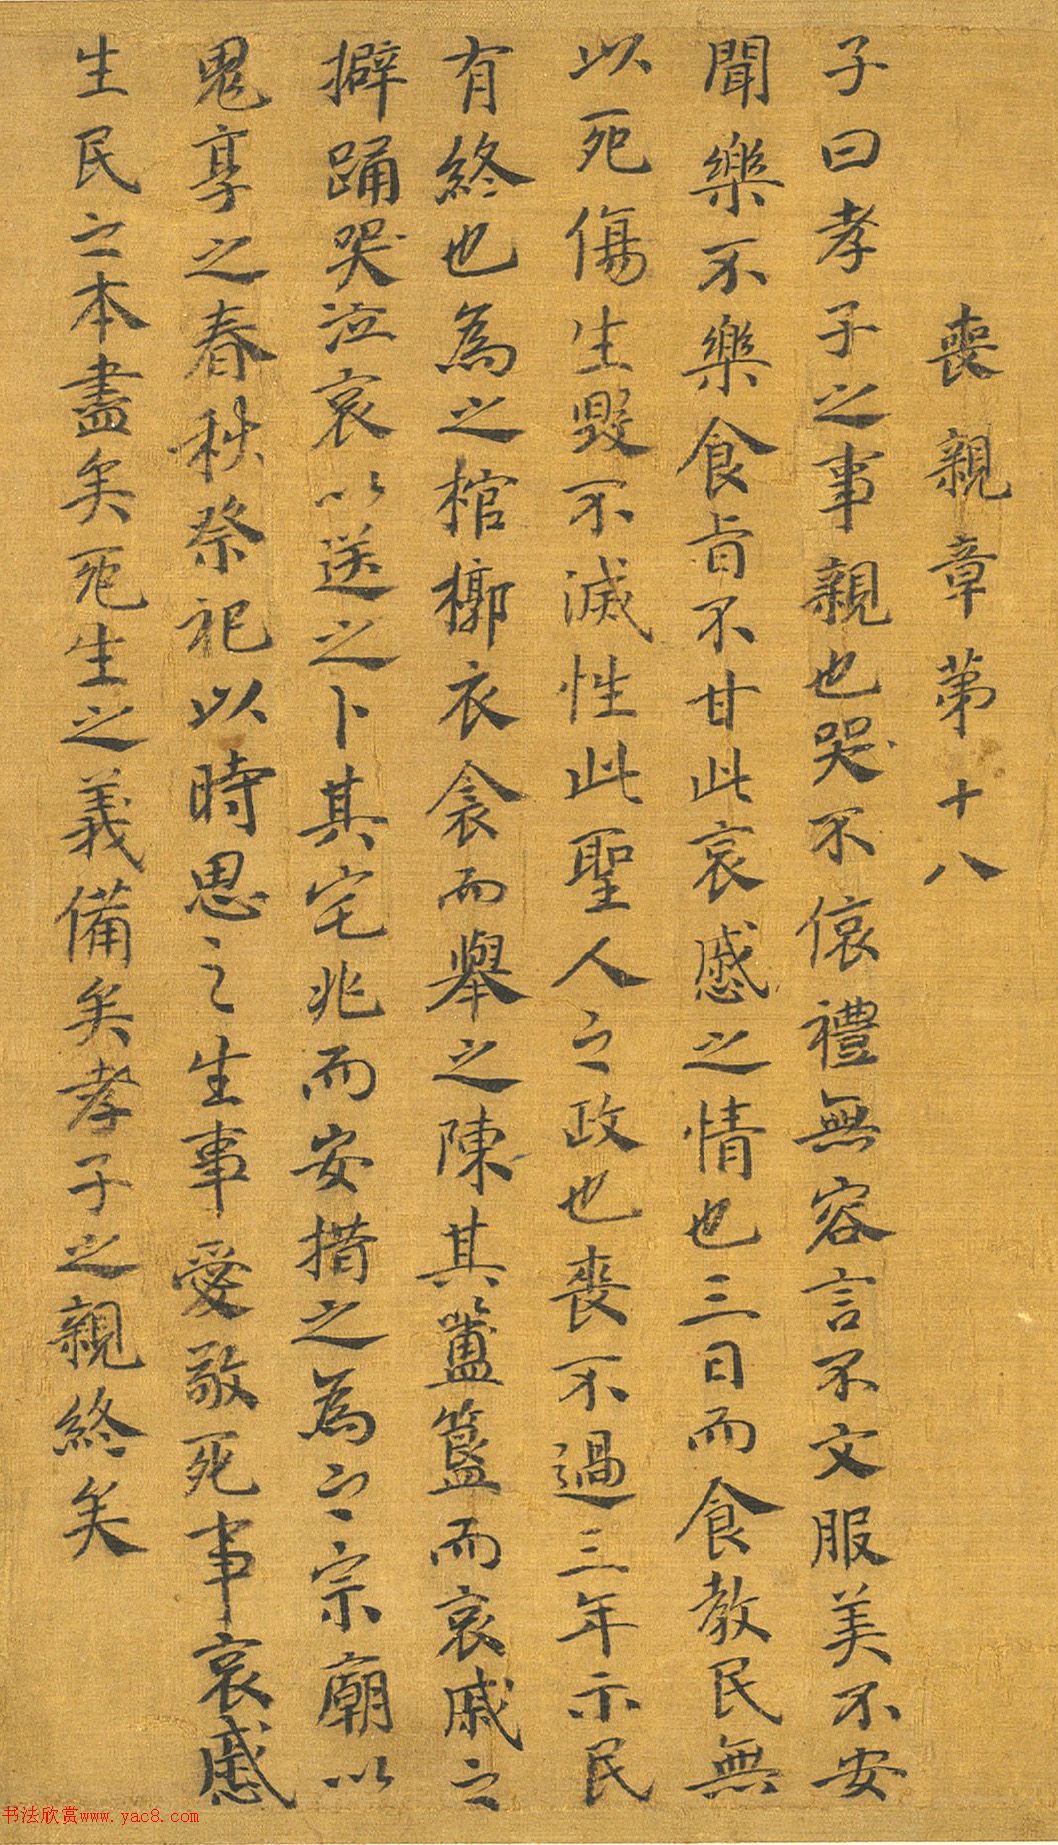 喪親章第十八
子曰孝子之事親也哭不偯禮無容言不文服美不安
聞樂不樂食旨不甘此哀慼之情也三日而食教民無
以死傷生毀不滅性此聖人之政也喪不過三年示民
有終也為之棺槨衣衾而舉之陳其簠簋而哀戚之
擗踊哭泣哀以送之卜其宅兆而安措之為之宗廟以
鬼享之春秋祭祀以時思之生事愛敬死事哀慼
生民之本盡矣死生之義備矣孝子之親終矣
书法欣赏www.yac8.com